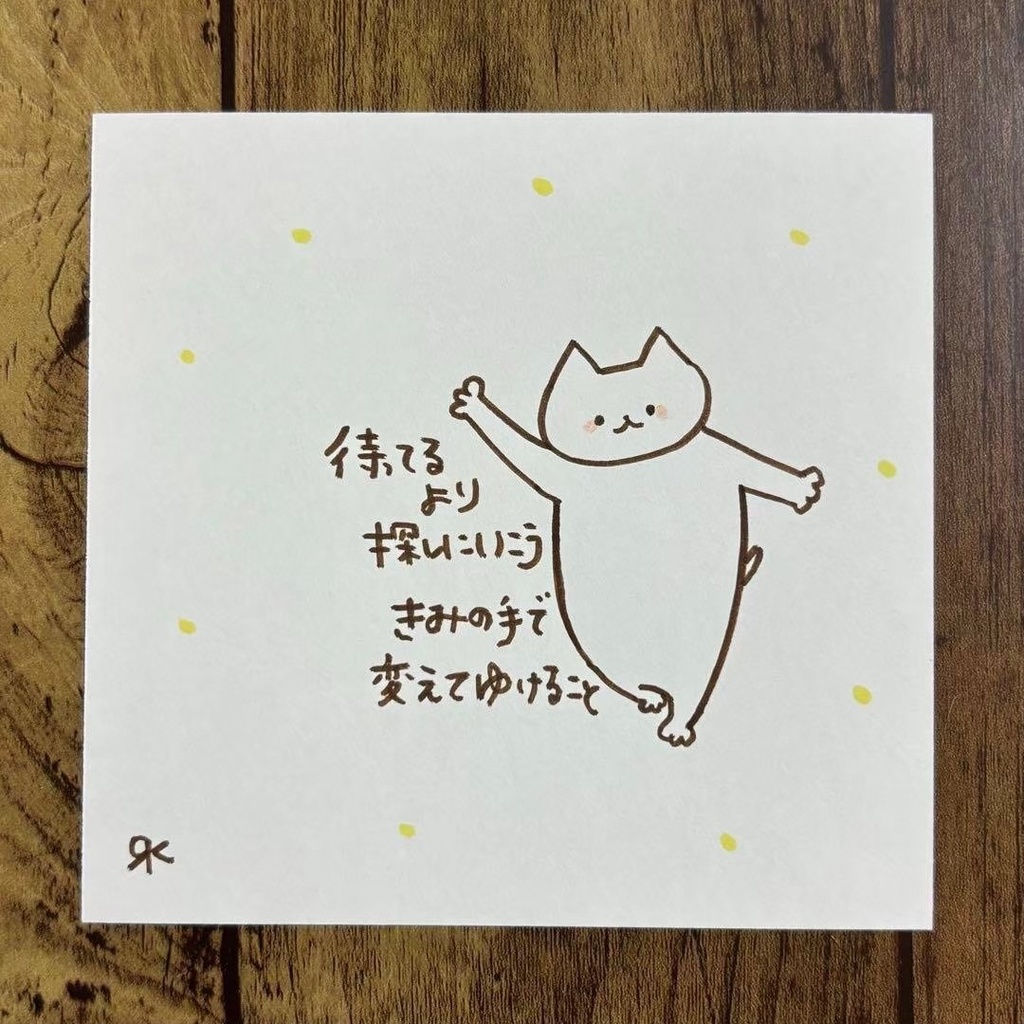 待ってる
より
探しにいこう
きみの手で
変えてゆけること